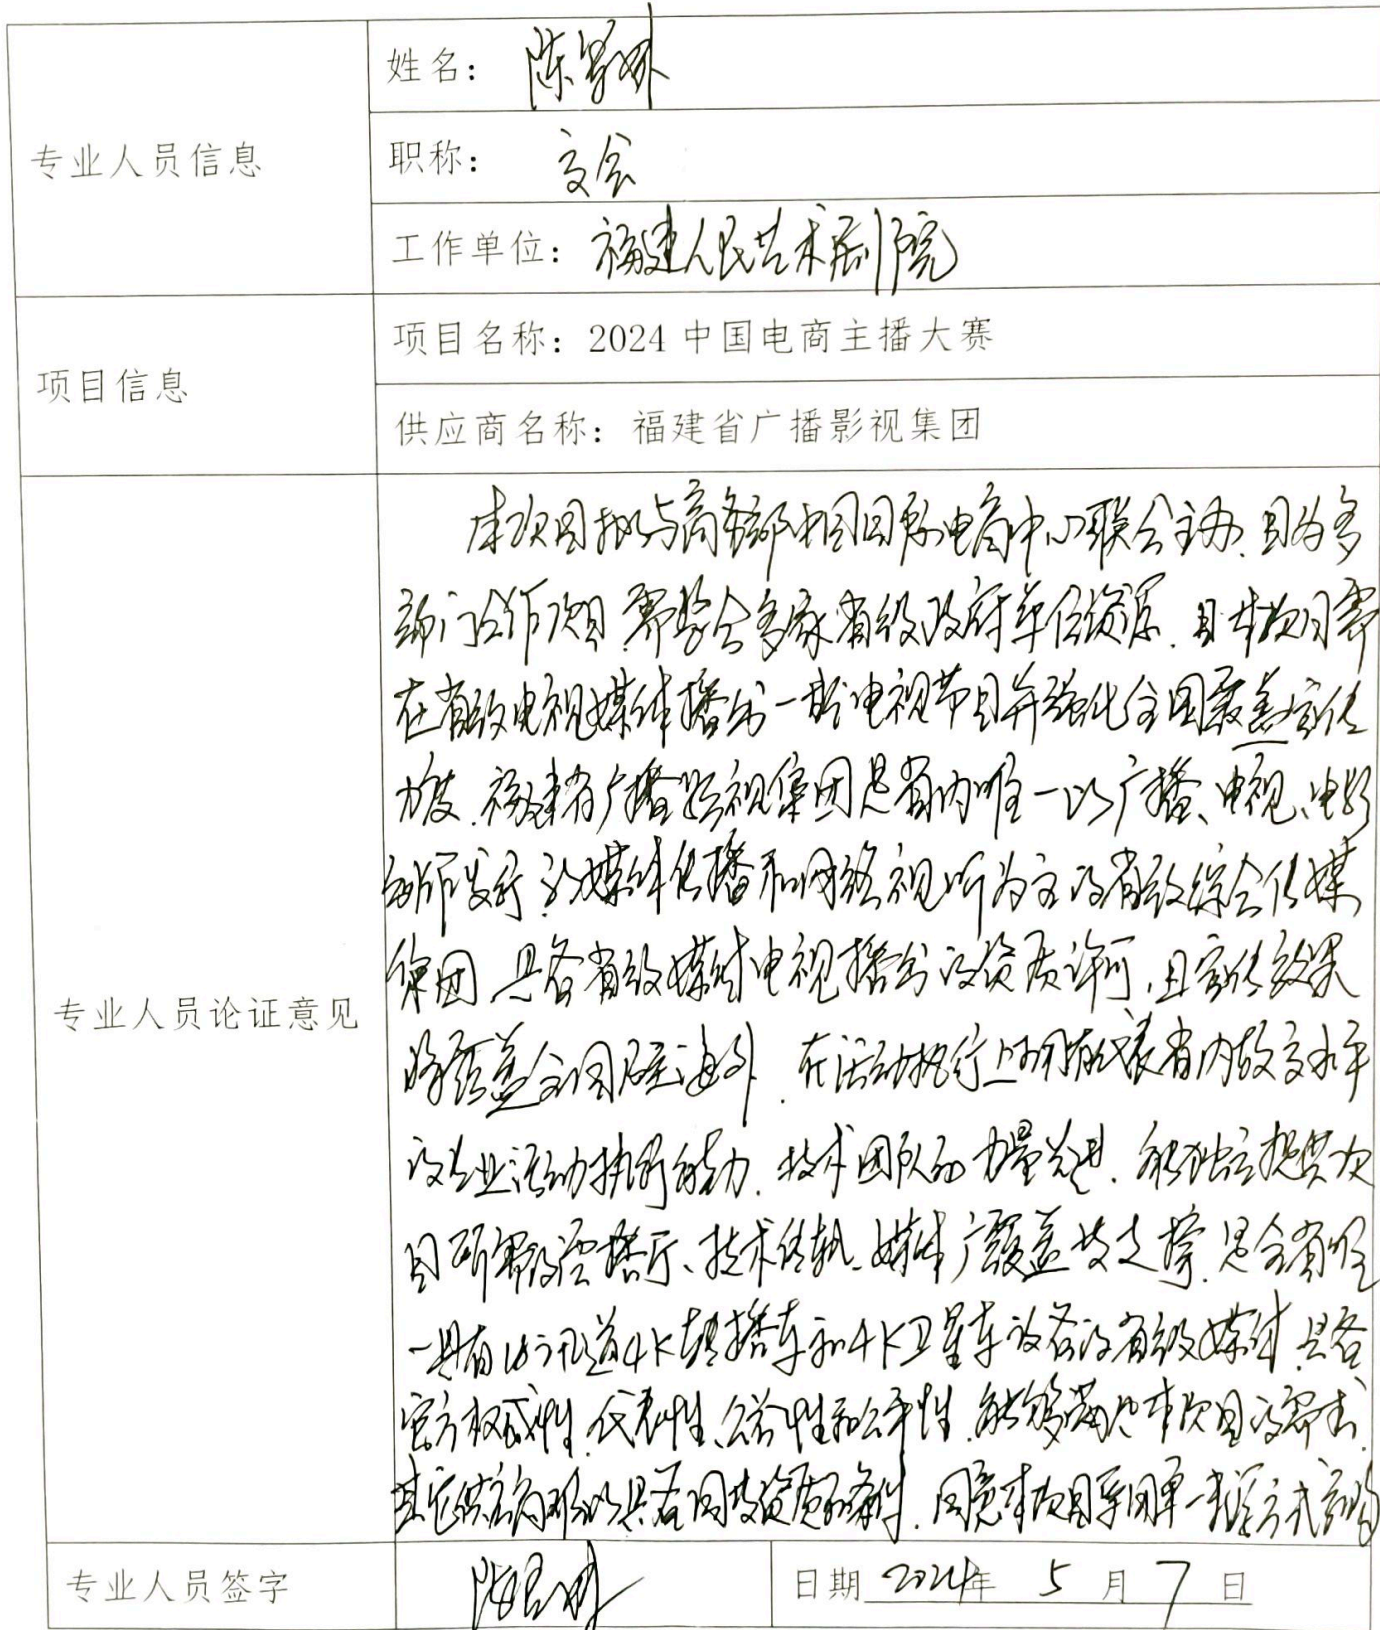 专业人员信息
姓名：陈
职称：
工作单位：福建人民艺术剧院
项目信息
项目名称：2024 中国电商主播大赛
供应商名称：福建省广播影视集团
专业人员论证意见
本项目拟与商务部中国国际电商中心联合主办，且为多
部门合作项目，需整合多家省级政府单位资源，且本项目需
在省级电视媒体播出一期电视节目并强化全国覆盖宣传
力度，福建省广播影视集团是省内唯一以广播、电视、电影
制作发行、新媒体传播和网络视听为主的省级综合传媒
集团，具备省级媒体电视播出的资质许可，且宣传效果
将覆盖全国及至海外，在活动执行上拥有代表省内较高水平
的专业活动执行能力，技术团队的力量先进，能独立提供项
目所需的演播厅、技术传输、媒体广覆盖技支撑，是全省唯
一具有16讯道4K转播车和4K卫星车设备的省级媒体，具备
官方权威性、代表性、公益性和公平性，能够满足本项目的需求，
其它供应商难以具备同等资质和条件，同意本项目采用单一来源方式采购
专业人员签字
日期 2024年 5 月 7 日